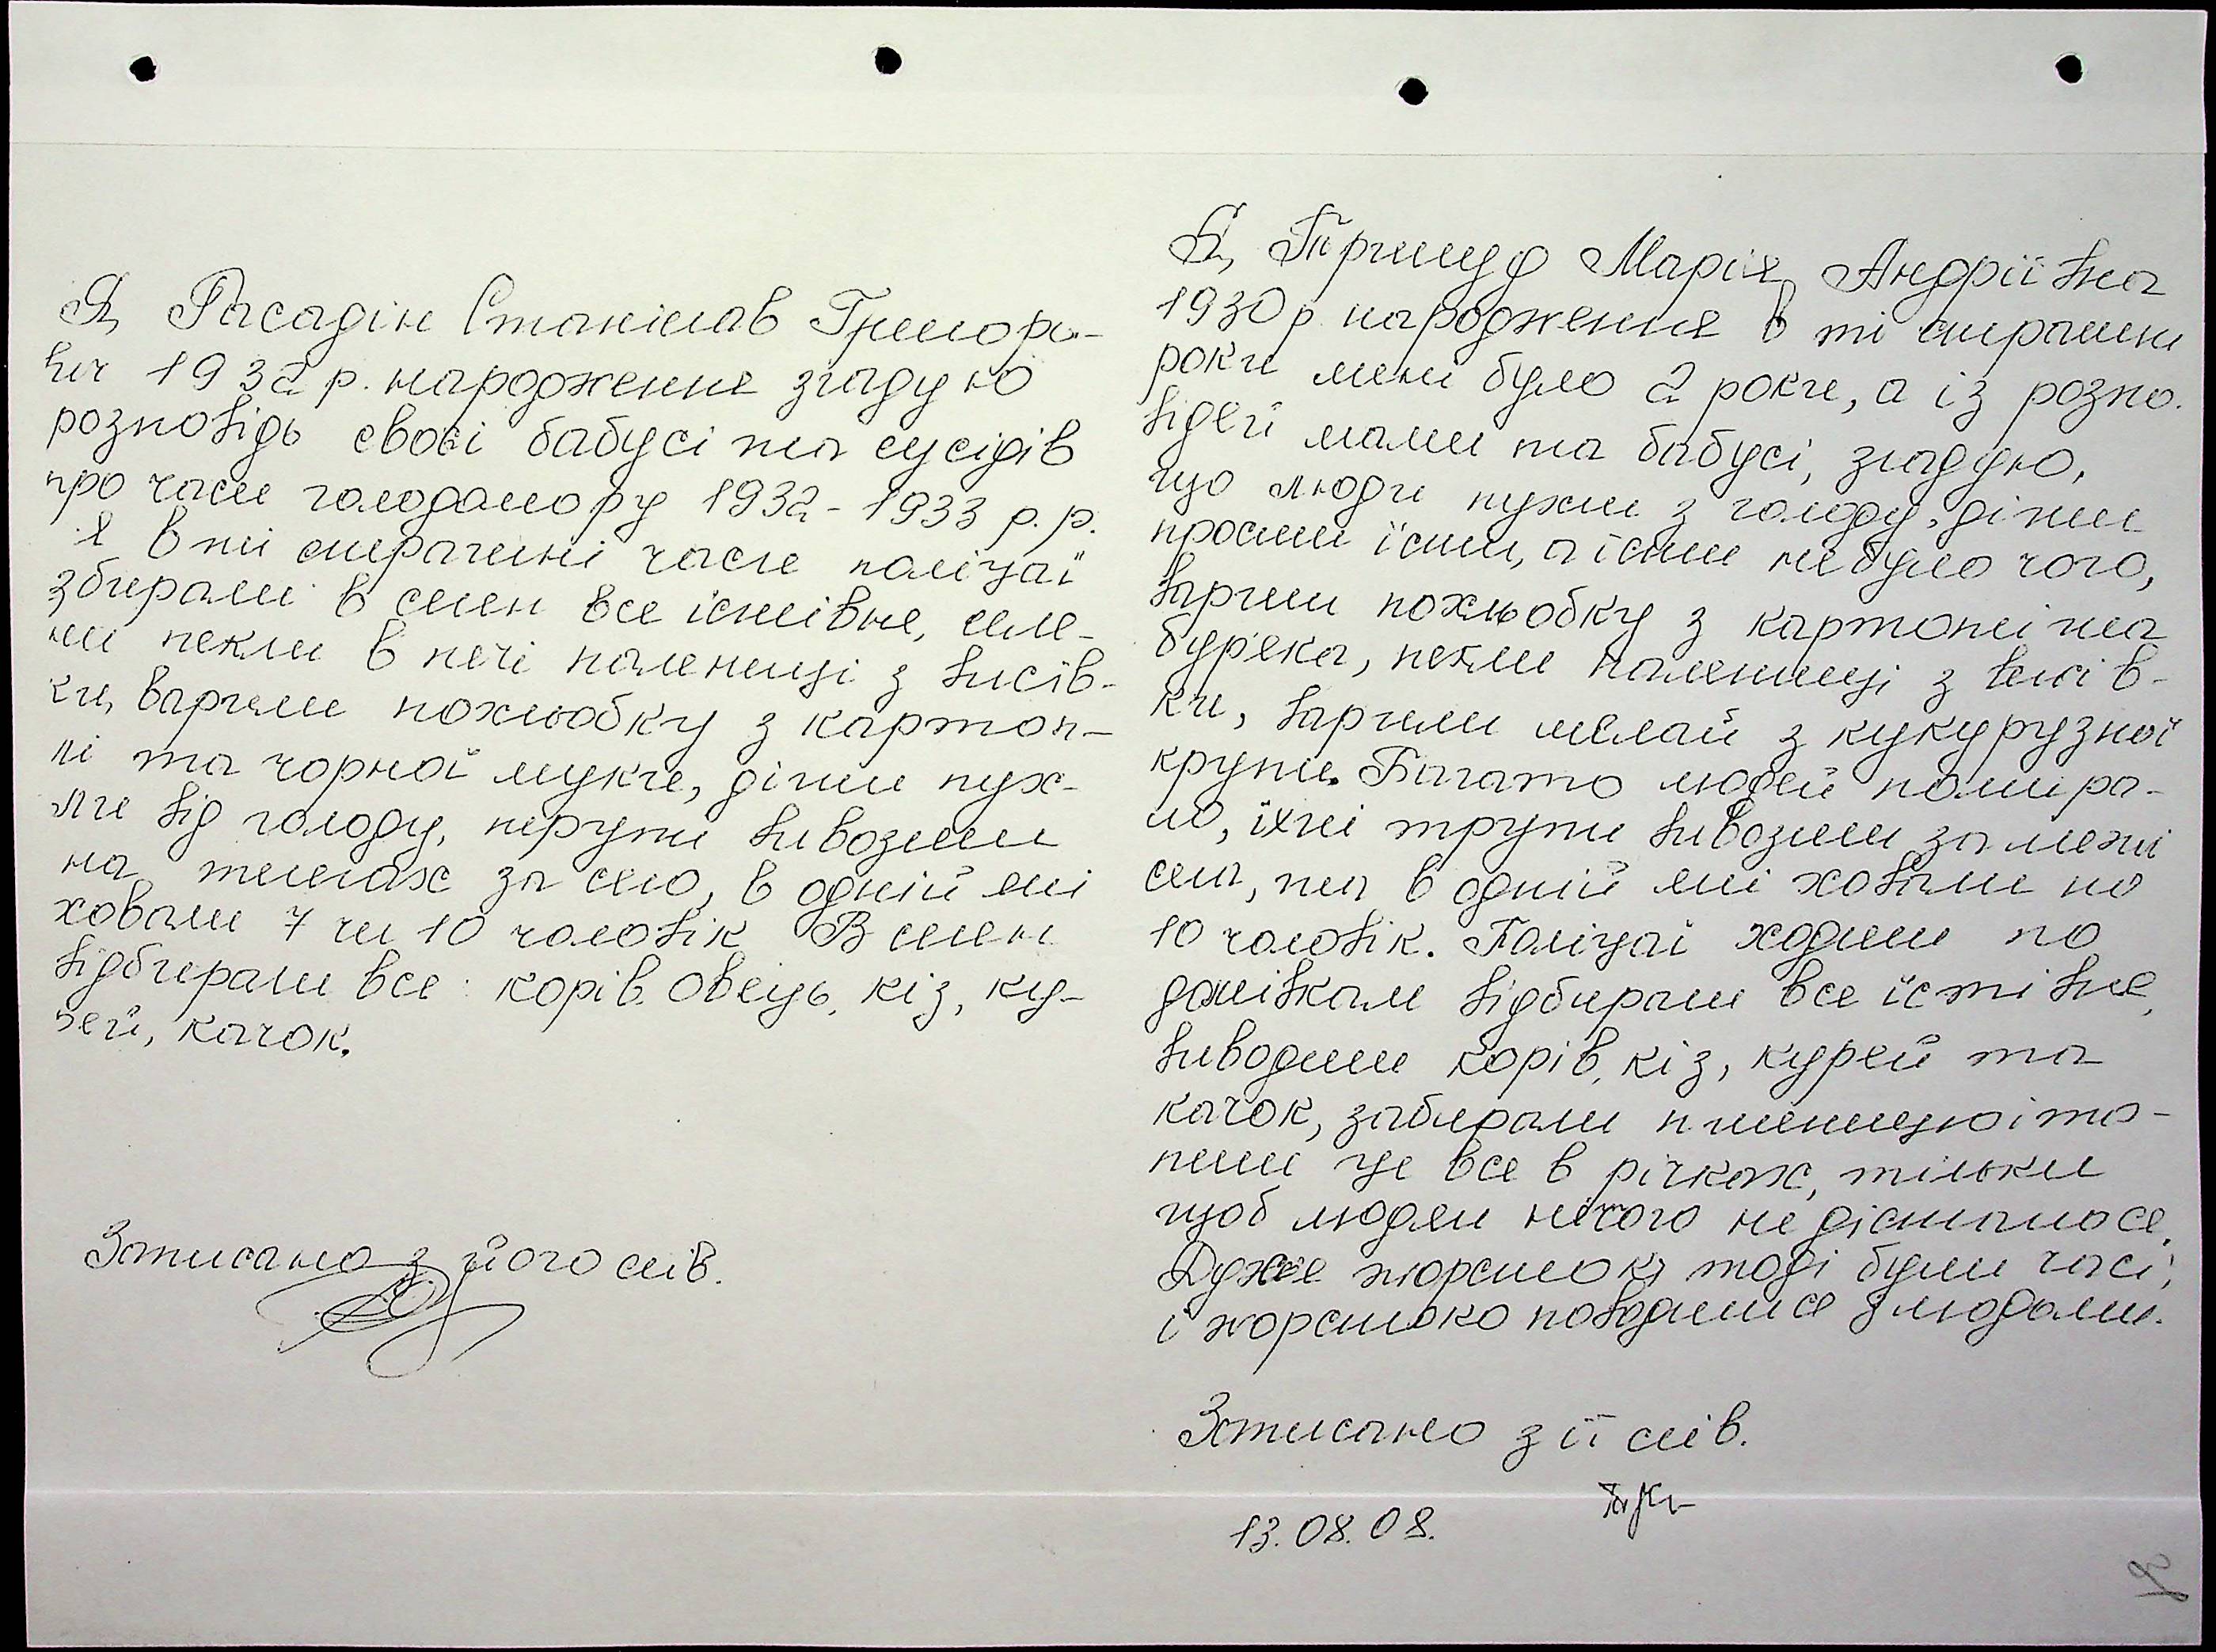 Я, Расадін Станіслав Григоро-
вич 1932 р. народження згадую
розповідь своєї бабусі та сусідів
про часи голодомору 1932-1933 р.р.
Я в ті страшні часи поліцаї
збирали в селян все їстівне, селя-
ни пекли в печі паляниці з висів-
ки, варили похльобку з картоп-
лі та чорної муки, діти пух-
ли від голоду, трупи вивозили
на телегах за село, в одній ямі
ховали 7 чи 10 чоловік В селян
відбирали все: корів, овець, кіз, ку-
рей, качок.
Записано з його слів.
Я, Марія Андріївна
1930 р. народження в ті страшні
роки мені було 2 роки, а із розпо-
відей мами та бабусі, згадую,
що люди пухли з голоду, діти
просили їсти, а їсти не було чого,
варили похльобку з картоплі та
буряка, пекли паляниці з висів-
ки, варили малай з кукурузної
крупи. Багато людей помира-
ло, їхні трупи вивозили за межі
села, та в одній ямі ховали по
10 чоловік. Поліцаї ходили по
домівкам відбирали все їстівне,
виводили корів, кіз, курей та
качок, забирали пшеницю і то-
пили це все в річках, тільки
щоб людям нічого не дісталося.
Дуже жорстокі тоді були часі,
і жорстоко поводилися з людьми.
Записано з її слів.
13.08.08.